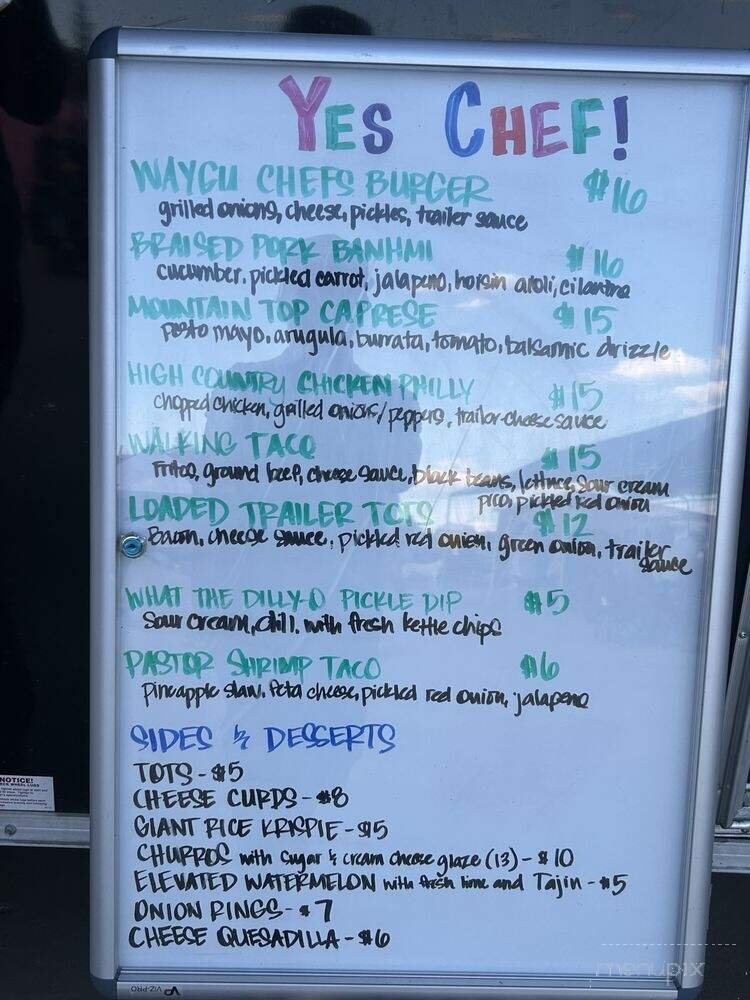 YES CHEF!
WAYGU CHEFS BURGER $16
grilled onions, cheese, pickles, trailer sauce
BRAISED PORK BANHMI $16
cucumber, pickled carrot, jalapeno, hoisin aioli, cilantro
MOUNTAIN TOP CAPRESE $15
pesto mayo, arugula, burrata, tomato, balsamic drizzle
HIGH COUNTRY CHICKEN PHILLY $15
chopped chicken, grilled onions/peppers, trailor cheese sauce
WALKING TACO $15
Fritos, ground beef, cheese sauce, black beans, lettuce, sour cream
pico, pickled red onion
LOADED TRAILER TOTS $12
Bacon, cheese sauce, pickled red onion, green onion, trailer
sauce
WHAT THE DILLY-O PICKLE DIP $5
Sour cream, dill. with fresh kettle chips
PASTOR SHRIMP TACO $6
pineapple slaw, feta cheese, pickled red onion, jalapeno
SIDES & DESSERTS
TOTS - $5
CHEESE CURDS - $8
GIANT RICE KRISPIE - $5
CHURROS with sugar & cream cheese glaze (13) - $10
ELEVATED WATERMELON with fresh lime and Tajin - $5
ONION RINGS - $7
CHEESE QUESADILLA - $6
NOTICE!
VIZ-PRO
menupix